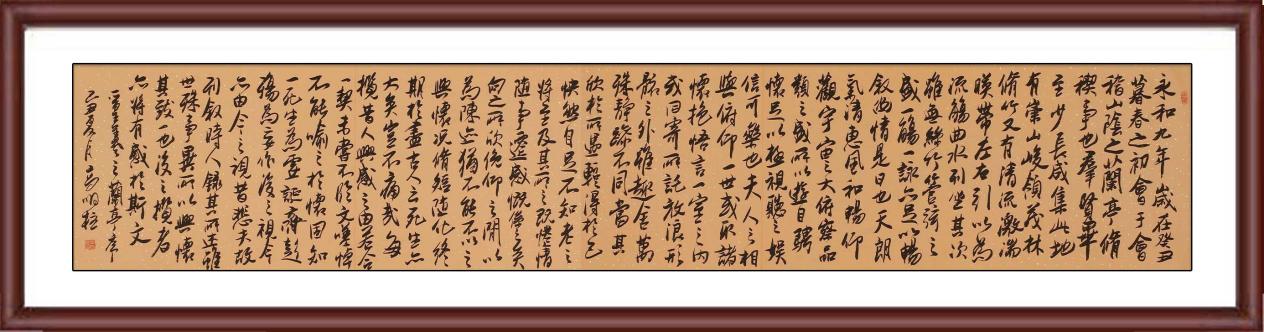 永和九年歲在癸丑
暮春之初會于會
稽山陰之蘭亭脩
禊事也羣賢畢
至少長咸集此地
有崇山峻領茂林
脩竹又有清流激湍
暎帶左右引以為
流觴曲水列坐其次
雖無絲竹管弦之
盛一觴一詠亦足以暢
敘幽情是日也天朗
氣清惠風和暢仰
觀宇宙之大俯察品
類之盛所以遊目騁
懷足以極視聽之娛
信可樂也夫人之相
與俯仰一世或取諸
懷抱悟言一室之內
或因寄所託放浪形
骸之外雖趣舍萬
殊靜躁不同當其
欣於所遇輒得於己
快然自足不知老之
將至及其所之既惓情
隨事遷感慨係之矣
向之所欣俛仰之間以
為陳迹猶不能不以之
興懷況脩短隨化終
期於盡古人云死生亦
大矣豈不痛哉每
攬昔人興感之由若合
一契未嘗不臨文嗟悼
不能喻之於懷固知
一死生為虛誕齊彭
殤為妄作後之視今
亦由今之視昔悲夫故
列敘時人錄其所述雖
世殊事異所以興懷
其致一也後之攬者
亦將有感於斯文
王羲之蘭亭序
丑夏月